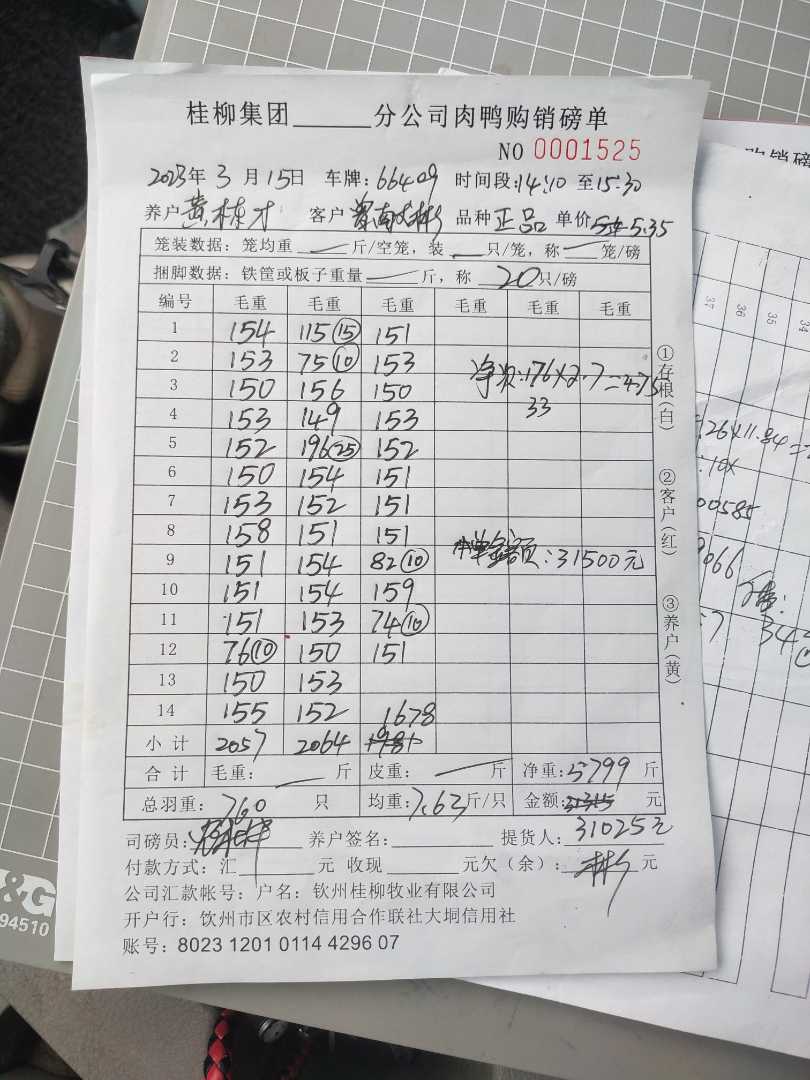 桂柳集团______分公司肉鸭购销磅单
NO 0001525
2023年 3 月 15日 车牌:66409 时间段:14:10 至15:30
养户 黄栋才 客户 品种 正品 单价 5.35
笼装数据：笼均重 —— 斤/空笼，装 — 只/笼，称 — 笼/磅
捆脚数据：铁筐或板子重量 —— 斤，称 20只/磅
编号 毛重 毛重 毛重 毛重 毛重 毛重
1 154 115(15) 151
2 153 75(10) 153
净次:176×2.7=475
3 150 156 150
33
4 153 149 153
5 152 196(25) 152
6 150 154 151
7 153 152 151
8 158 151 151
金额:31500元
9 151 154 82(10)
10 151 154 159
11 151 153 74(10)
12 76(10) 150 151
13 150 153
14 155 152
1678
小计 2057 2064
合计 毛重: — 斤 皮重: — 斤 净重:5799 斤
总羽重: 760 只 均重:7.63斤/只 金额:31315 元
31025元
司磅员: 养户签名: 提货人:
付款方式：汇______元 收现______元欠（余）：彬 元
公司汇款帐号：户名：钦州桂柳牧业有限公司
开户行：饮州市区农村信用合作联社大垌信用社
账号：8023 1201 0114 4296 07
①存根(白)
②客户(红)
③养户(黄)
购销磅
37
36
35
34
26×11.84=
:10×
00585
9066
57
342
&G
94510